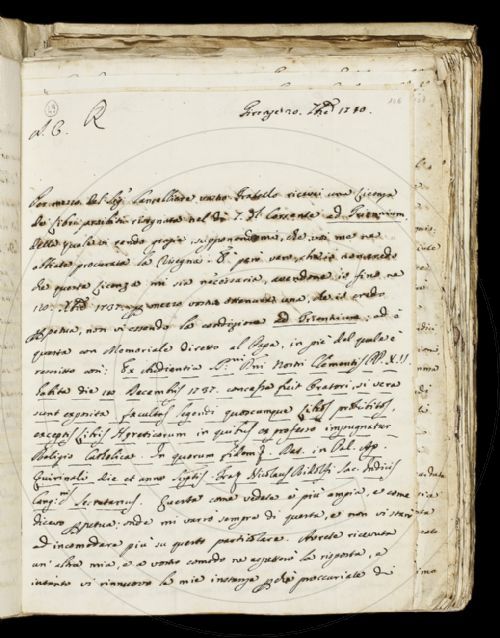 A. C.
Firenze 20. 7bre 1740.
Per mezzo del Sig. Cancelliere vostro Fratello ricevei una licenza
de' libri proibiti rassegnata nel dì 7. del corrente ad Triennium,
della quale vi rendo grazie, supponendomi, che voi me ne
abbiate procurata la . È però vero, che io non credo
che questa licenza mi sia necessaria, avendone io fino ne
10. Xbre 1737. per mezzo vostro ottenuta una, che io credo
perpetua, non vi essendo la condizione ad Triennium; ed è
questa con Memoriale diretto al Papa, in piè del quale è
rescritto così: Ex Audientia SS.mi Dni Nostri Clementis PP. XII.
habita die 10 Decembris 1737. concessa fuit Oratori, si vera
sunt exposita facultas legendi quoscumque libros prohibitos,
exceptis libris Hereticorum in quibus ex professo impugnatur
Religio Catholica. In quorum fidem &. Dat. in Pal. Ap.
Quirinali die et anno Fra Nicolaus Ridolfi Sac. Indicis
Cong.nis Secretarius. Questa come vedete è più ampia, e come
dicevo perpetua: onde mi varrò sempre di questa, e non vi starò
ad incomodare più su questo particolare. Avrete ricevuta
un' altra mia, e a vostro comodo ne aspetterò la risposta, e
intanto vi rinnuovo la mia instanza perchè procuriate di